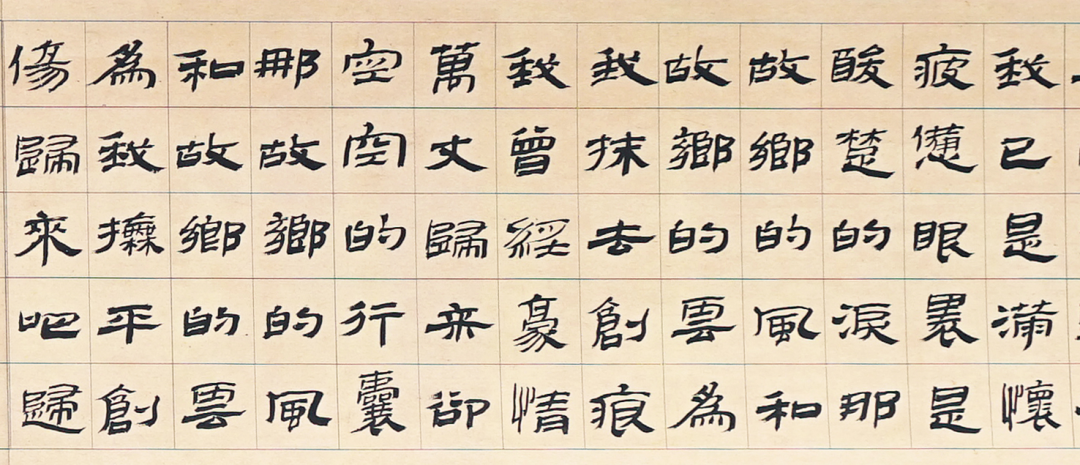 我已是滿懷
疲憊眼裏是
酸楚的淚那
故鄉的風和
故鄉的雲為
我抹去創痕
我曾經豪情
萬丈歸来卻
空空的行囊
那故鄉的風
和故鄉的雲
為我撫平創
傷歸來吧歸